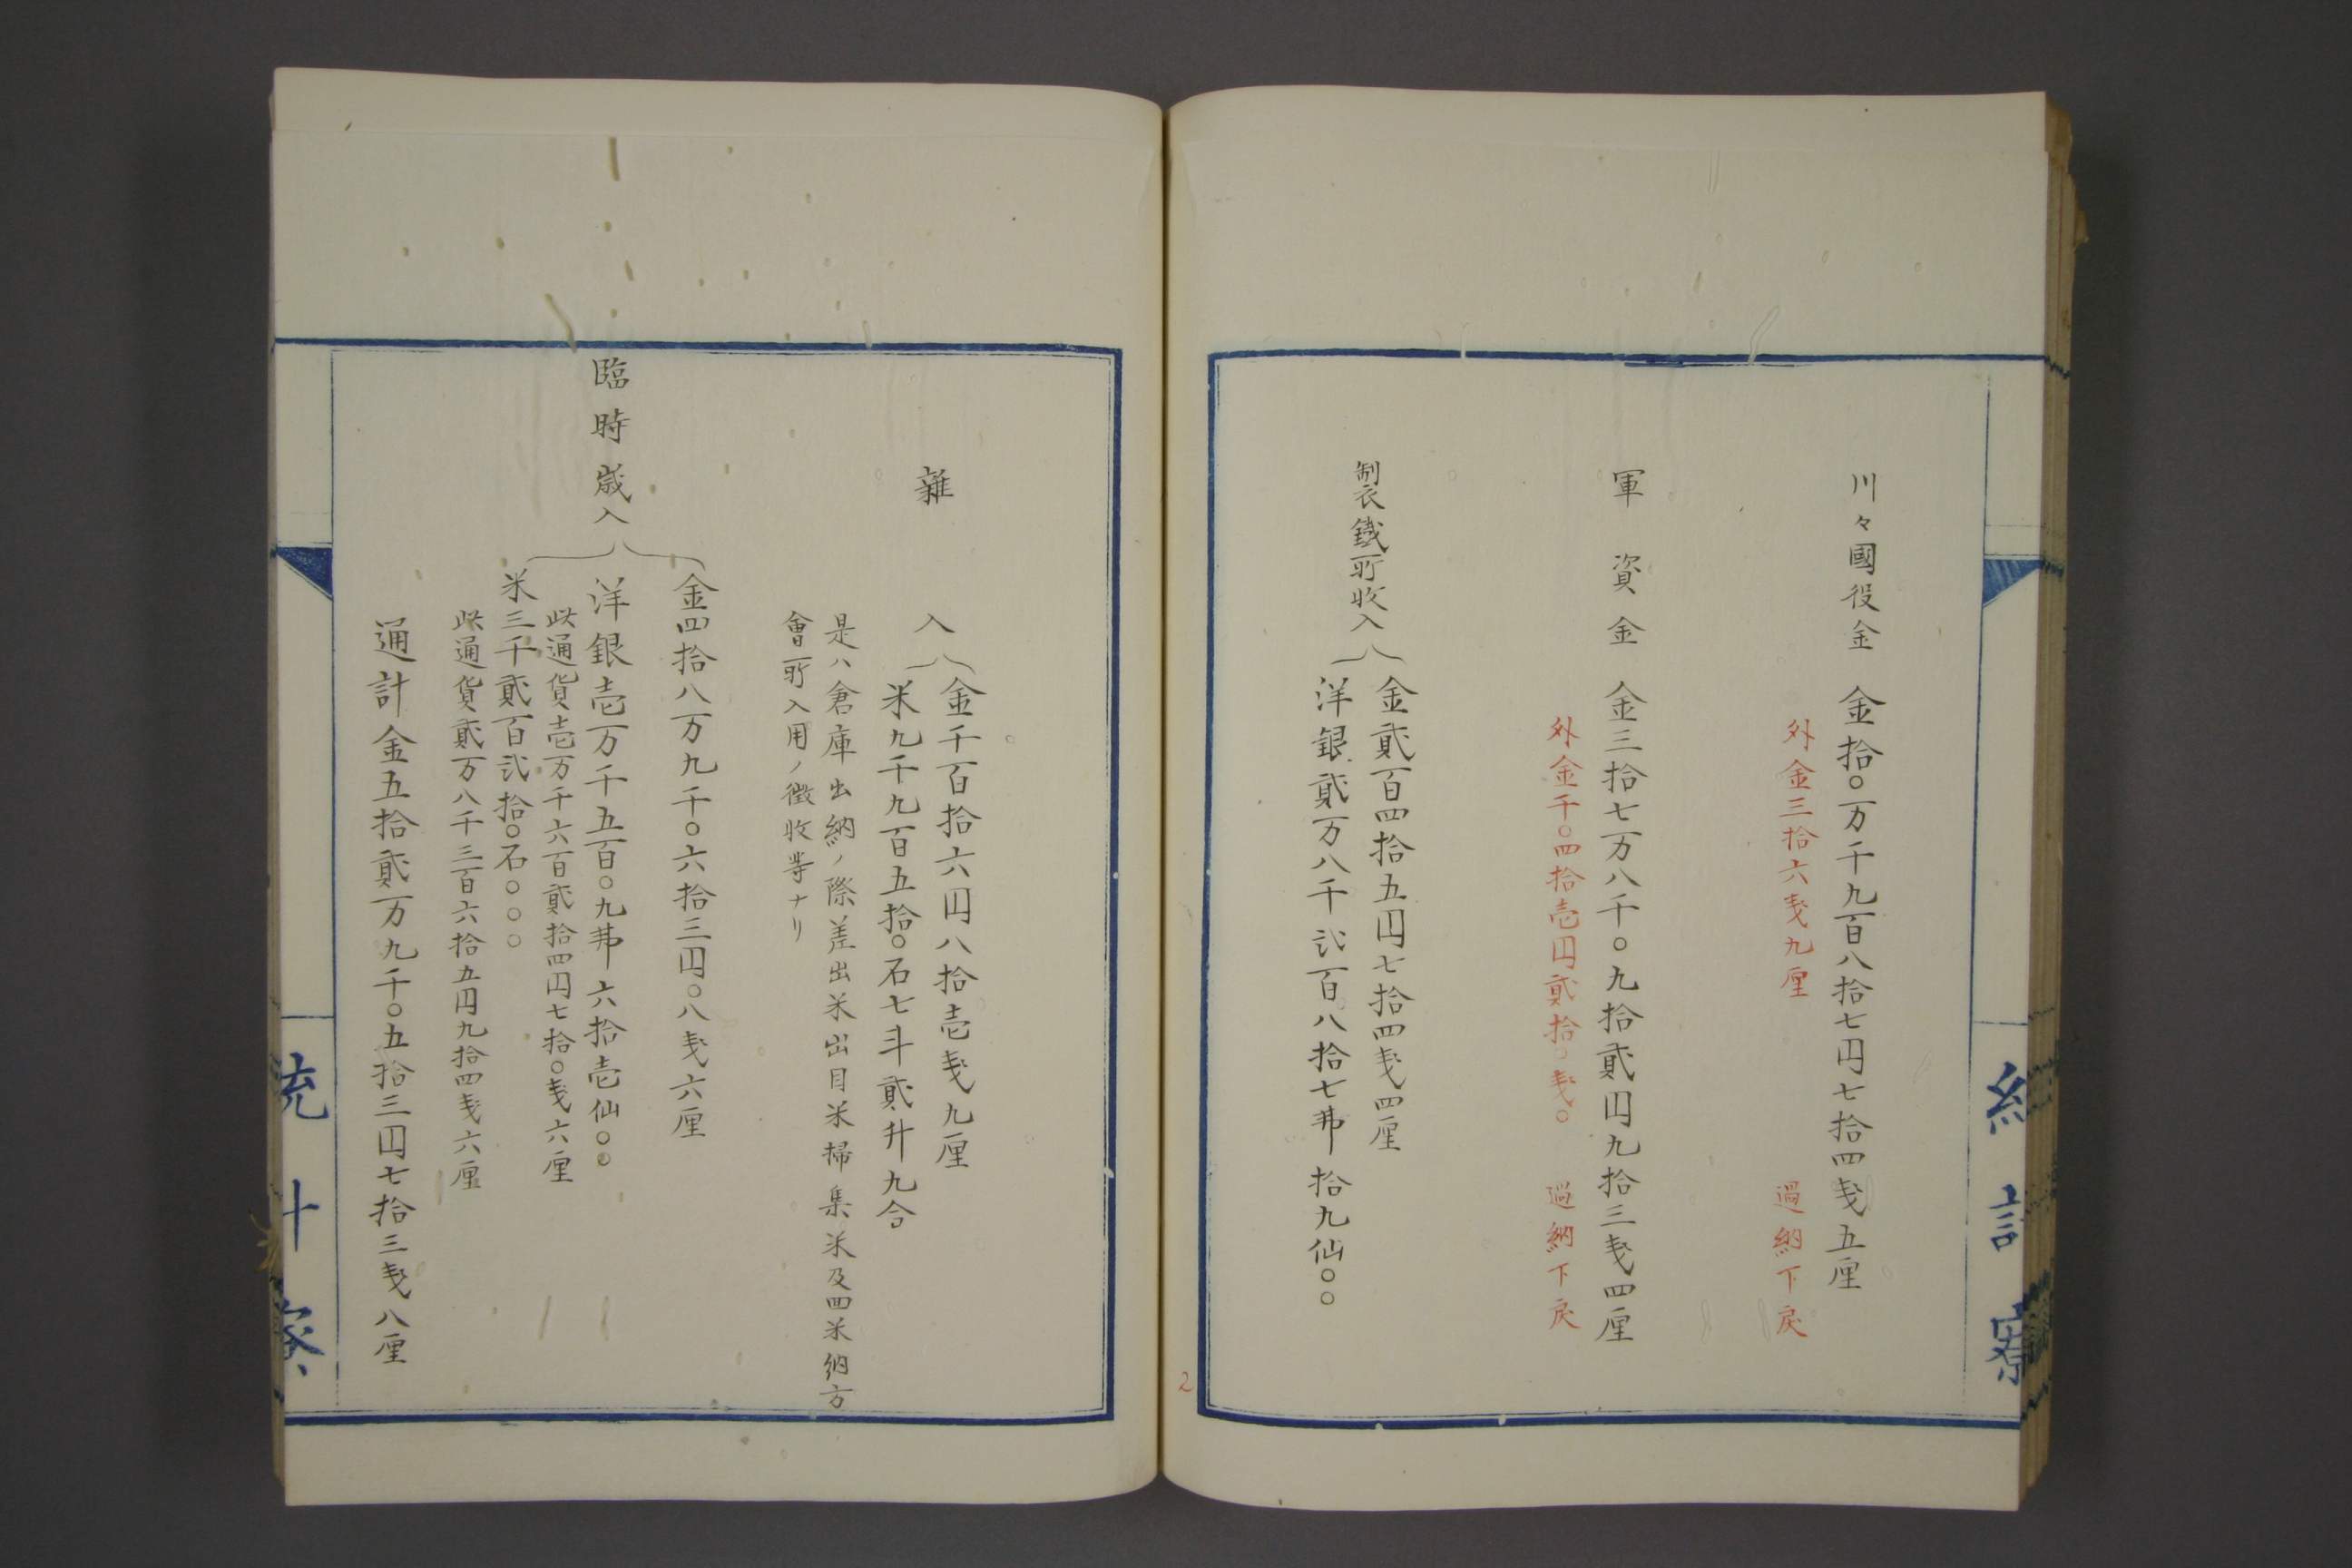 川々國役金 金拾〇万千九百八拾七円七拾四戔五厘
外金三拾六戔九厘 過納下戻
軍資金 金三拾七万八千〇九拾貳円九拾三戔四厘
外金千〇四拾壱円貳拾〇戔〇 過納下戻
製鐵所收入 金貳百四拾五円七拾四戔四厘
洋銀貳万八千弐百八拾七弗拾九仙〇〇
2
雜入 金千百拾六円八拾壱戔九厘
米九千九百五拾〇石七斗貳升九合
是ハ倉庫出納ノ際差出米出目米掃集米及四米納方
會所入用ノ徴收等ナリ
臨時歳入 金四拾八万九千〇六拾三円〇八戔六厘
洋銀壱万千五百〇九弗六拾壱仙〇〇
此通貨壱万千六百貳拾四円七拾〇戔六厘
米三千貳百弐拾〇石〇〇〇
此通貨貳万八千三百六拾五円九拾四戔六厘
通計金五拾貳万九千〇五拾三円七拾三戔八厘